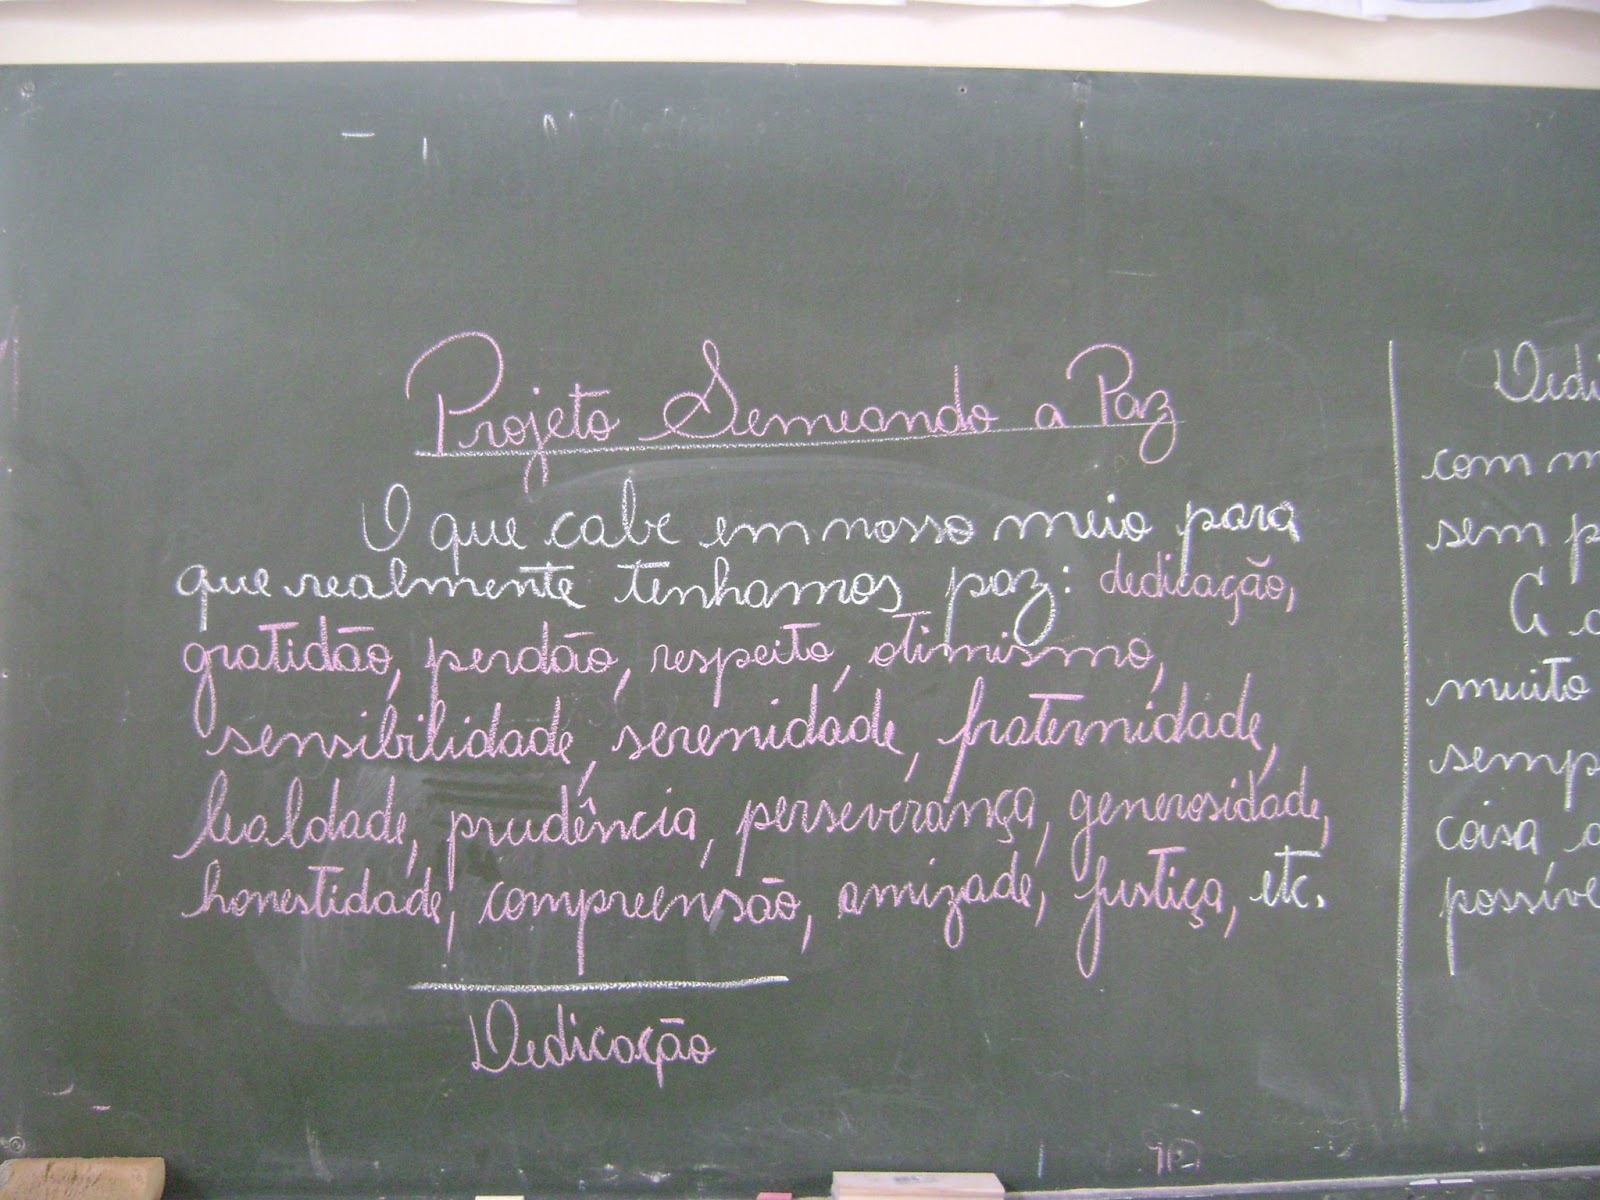 Projeto Semeando a Paz
O que cabe em nosso meio para
que realmente tenhamos paz: dedicação,
gratidão, perdão, respeito, otimismo,
sensibilidade, serenidade, fraternidade,
lealdade, prudência, perseverança, generosidade,
honestidade, compreensão, amizade, justiça, etc.
Dedicação
Dedi
com m
sem p
A a
muito
semp
coisa a
possíve